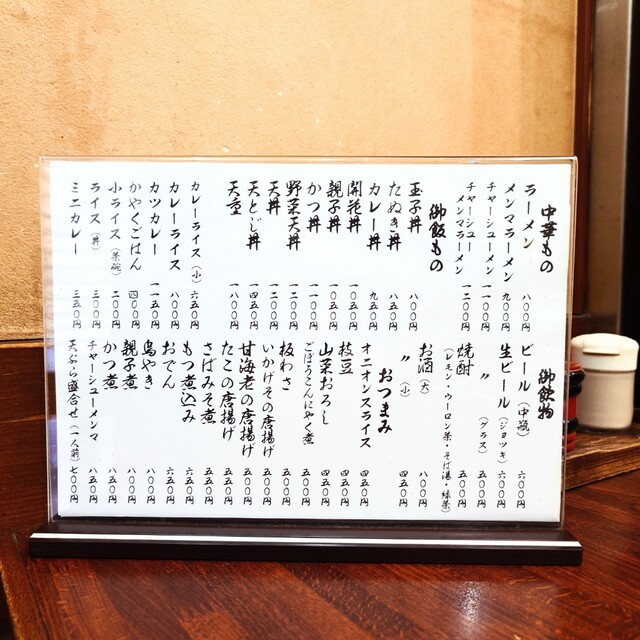 中華もの
ラーメン 八〇〇円
メンマラーメン 九〇〇円
チャーシューメン 一一〇〇円
チャーシューメンマラーメン 一二〇〇円
御飯もの
玉子丼 八〇〇円
たぬき丼 八五〇円
カレー丼 九五〇円
開花丼 一〇五〇円
親子丼 一〇五〇円
かつ丼 一一〇〇円
野菜天丼 一二〇〇円
天丼 一三〇〇円
天とじ丼 一四五〇円
天重 一八〇〇円
カレーライス(小) 六五〇円
カレーライス 八〇〇円
カツカレー 一一五〇円
かやくごはん 四〇〇円
小ライス(茶碗) 二〇〇円
ライス(丼) 三〇〇円
ミニカレー 三五〇円
御飲物
ビール(中瓶) 六〇〇円
生ビール(ジョッキ) 六〇〇円
〃(グラス) 五〇〇円
焼酎 五〇〇円
(レモン・ウーロン茶・そば湯・緑茶)
お酒(大) 八〇〇円
〃(小) 四五〇円
おつまみ
オニオンスライス 四五〇円
枝豆 四五〇円
山菜おろし 四五〇円
ごぼうこんにゃく煮 五〇〇円
板わさ 五〇〇円
いかげその唐揚げ 五〇〇円
甘海老の唐揚げ 五五〇円
たこの唐揚げ 五五〇円
さばみそ煮 五五〇円
もつ煮込み 六五〇円
おでん 六五〇円
鳥やき 八〇〇円
親子煮 八〇〇円
かつ煮 八五〇円
チャーシューメンマ 八五〇円
天ぷら盛合せ(一人前) 七〇〇円